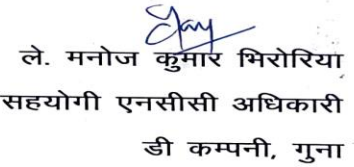 ले. मनोज कुमार भिरोरिया
सहयोगी एनसीसी अधिकारी
डी कम्पनी, गुना